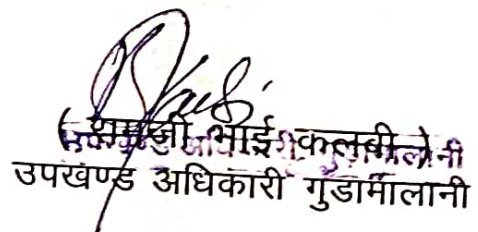 ( शमजी भाई कलबी )
उपखण्ड अधिकारी गुडामालानी